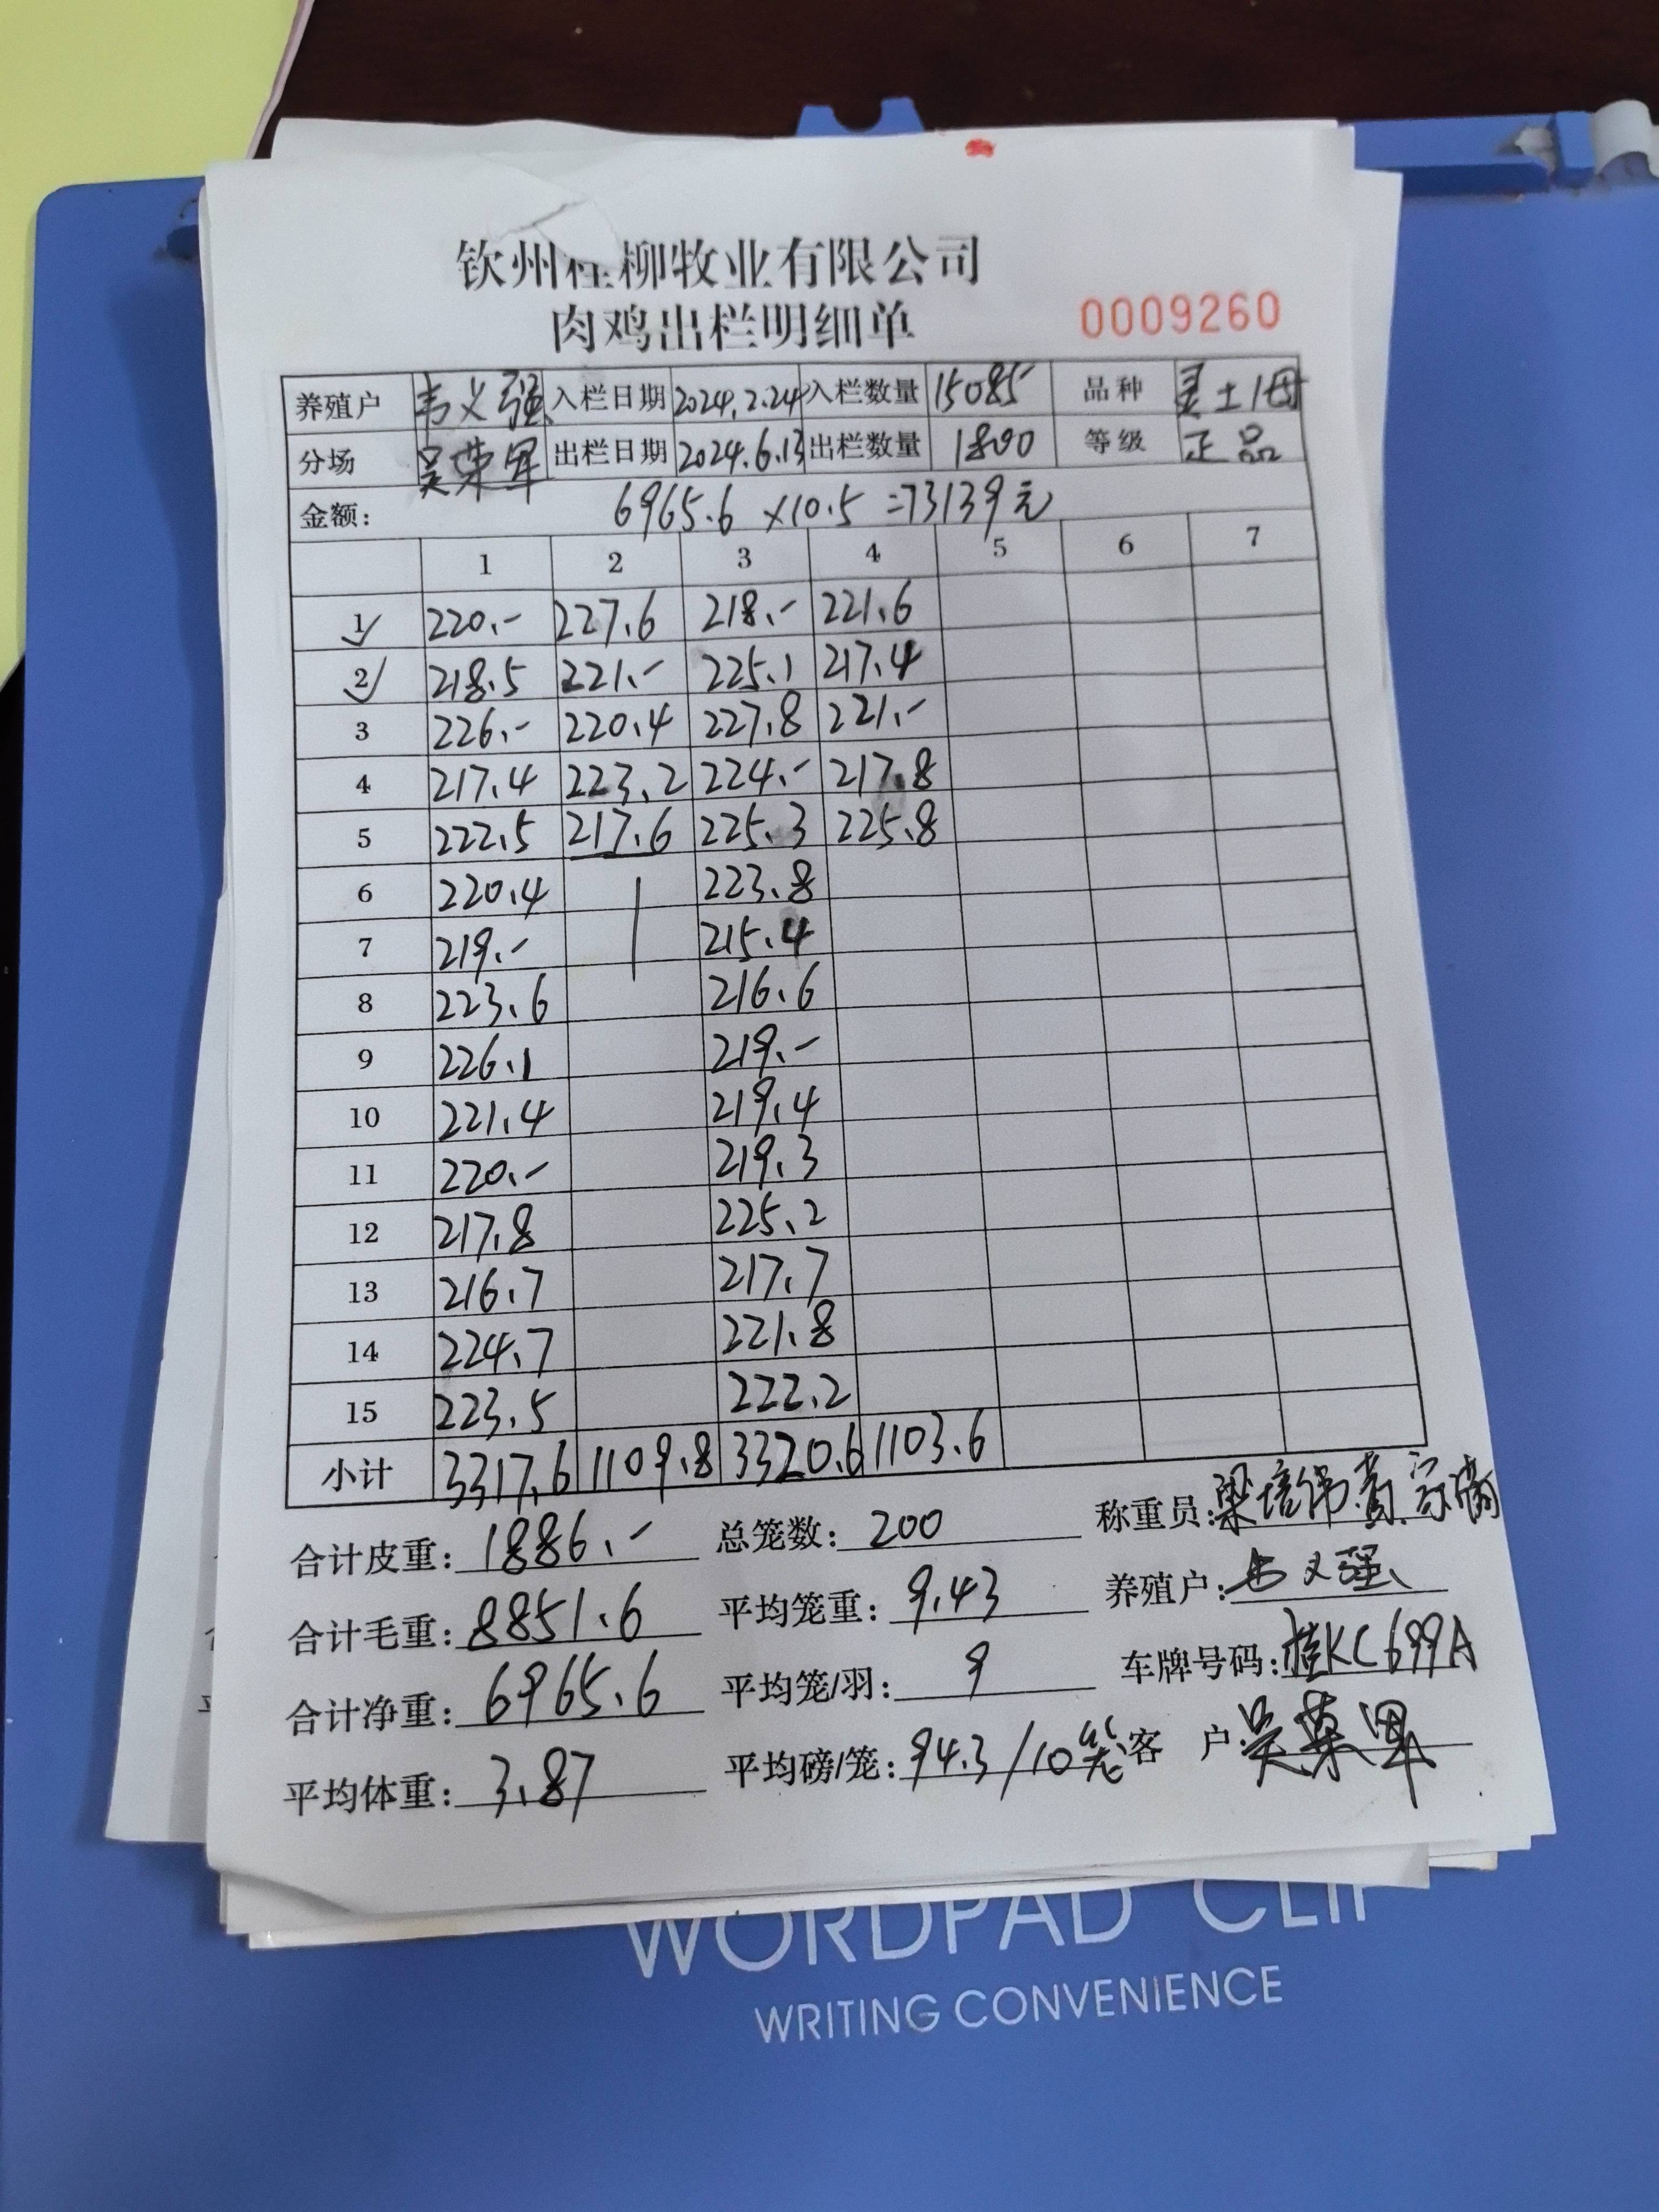 钦州桂柳牧业有限公司
肉鸡出栏明细单 0009260
养殖户 韦义强 入栏日期 2024.2.24 入栏数量 15085 品种 灵土1母
分场 吴荣军 出栏日期 2024.6.13 出栏数量 1800 等级 正品
金额: 6965.6×10.5=73139元
1 2 3 4 5 6 7
1 220.- 227.6 218.- 221.6
2 218.5 221.- 225.1 217.4
3 226.- 220.4 227.8 221.-
4 217.4 223.2 224.- 217.8
5 222.5 217.6 225.3 225.8
6 220.4 223.8
7 219.- 215.4
8 223.6 216.6
9 226.1 219.-
10 221.4 219.4
11 220.- 219.3
12 217.8 225.2
13 216.7 217.7
14 224.7 221.8
15 223.5 222.2
小计 3317.6 1109.8 3320.6 1103.6
合计皮重: 1886.- 总笼数: 200 称重员: 梁培伟 黄宗
合计毛重: 8851.6 平均笼重: 9.43 养殖户: 韦义强
合计净重: 6965.6 平均笼/羽: 9 车牌号码: 桂KC699A
平均体重: 3.87 平均磅/笼: 94.3/10笼 客户: 吴荣军
WORDPAD CLIP
WRITING CONVENIENCE